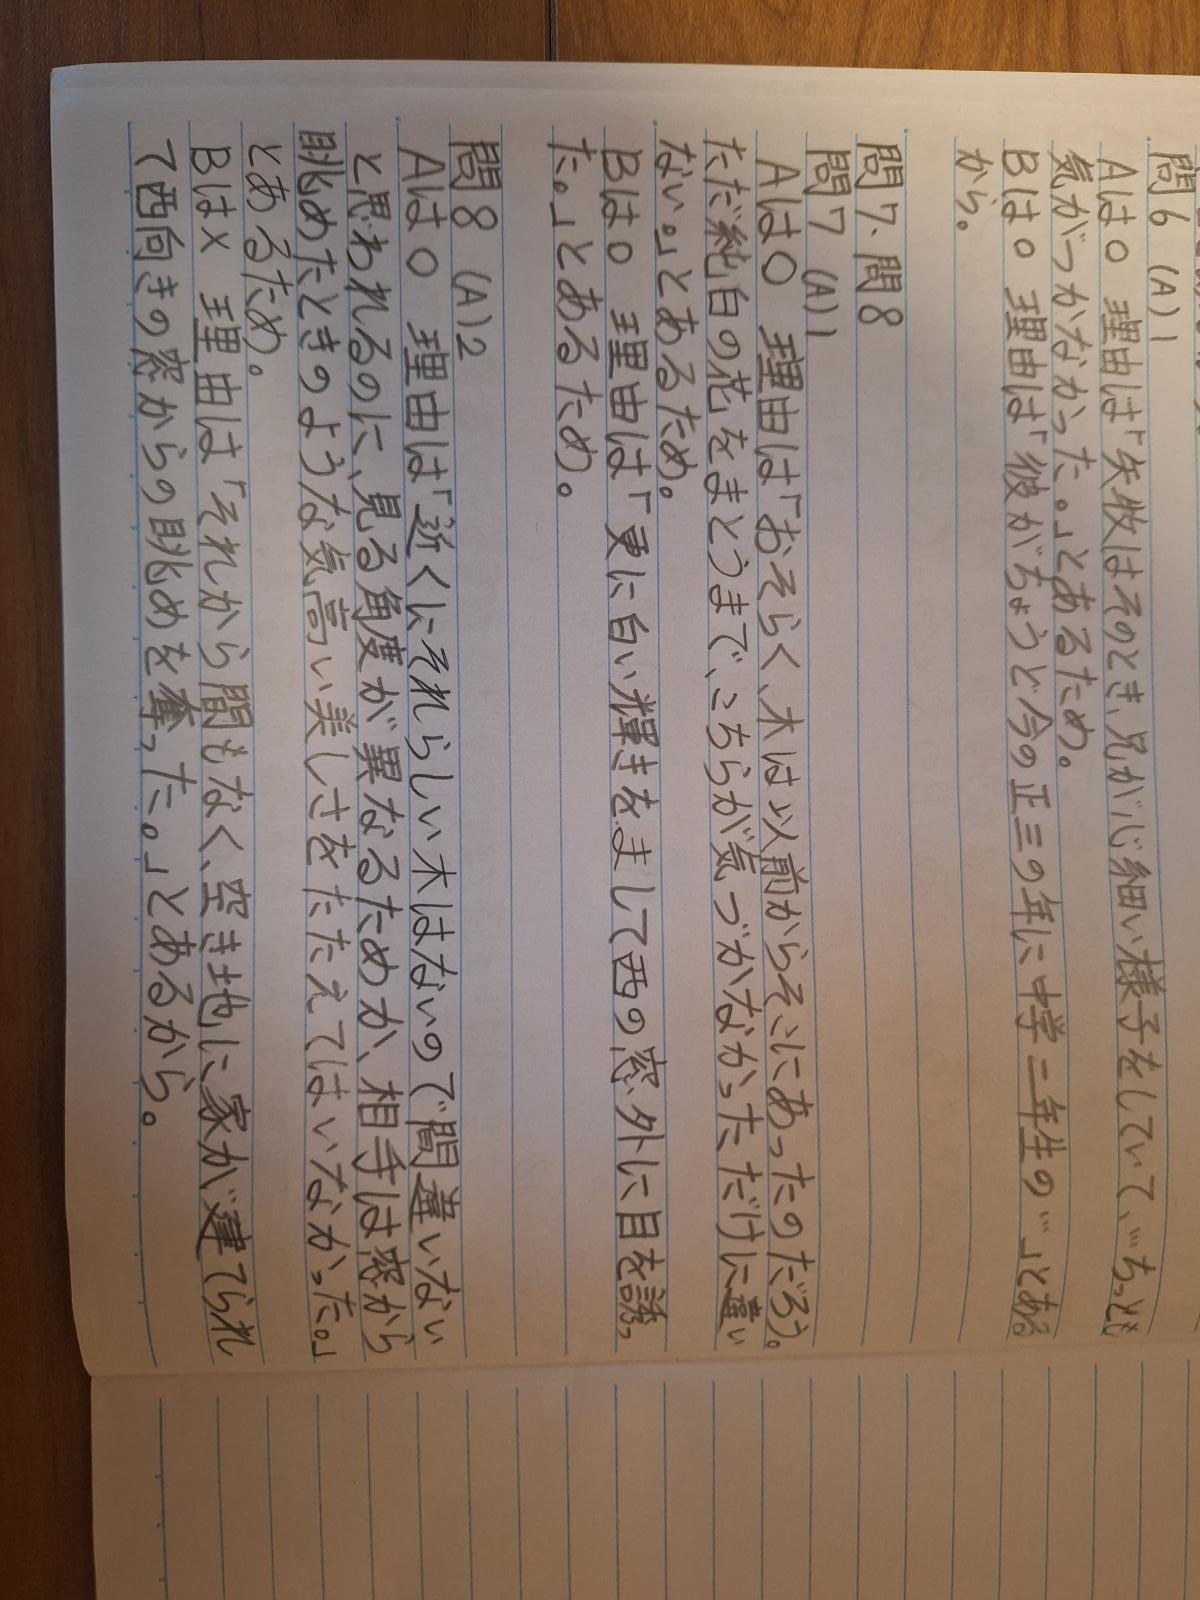 問6 (A)1
Aは○ 理由は「矢牧はそのとき、兄が心細い様子をしていて、…ちっとも
気がつかなかった。」とあるため。
Bは○ 理由は「彼がちょうど今の正三の年に中学二年生の…」とある
から。
問7、問8
問7 (A)1
Aは○ 理由は「おそらく、木は以前からそこにあったのだろう。
ただ純白の花をまとうまで、こちらが気づかなかっただけに違い
ない。」とあるため。
Bは○ 理由は「更に白い輝きをまして西の窓外に目を誘っ
た。」とあるため。
問8 (A)2
Aは○ 理由は「近くにそれらしい木はないので間違いない
と思われるのに、見る角度が異なるためか、相手は窓から
眺めたときのような気高い美しさをたたえてはいなかった。」
とあるため。
Bは× 理由は「それから間もなく、空き地に家が建てられ
て西向きの窓からの眺めを奪った。」とあるから。